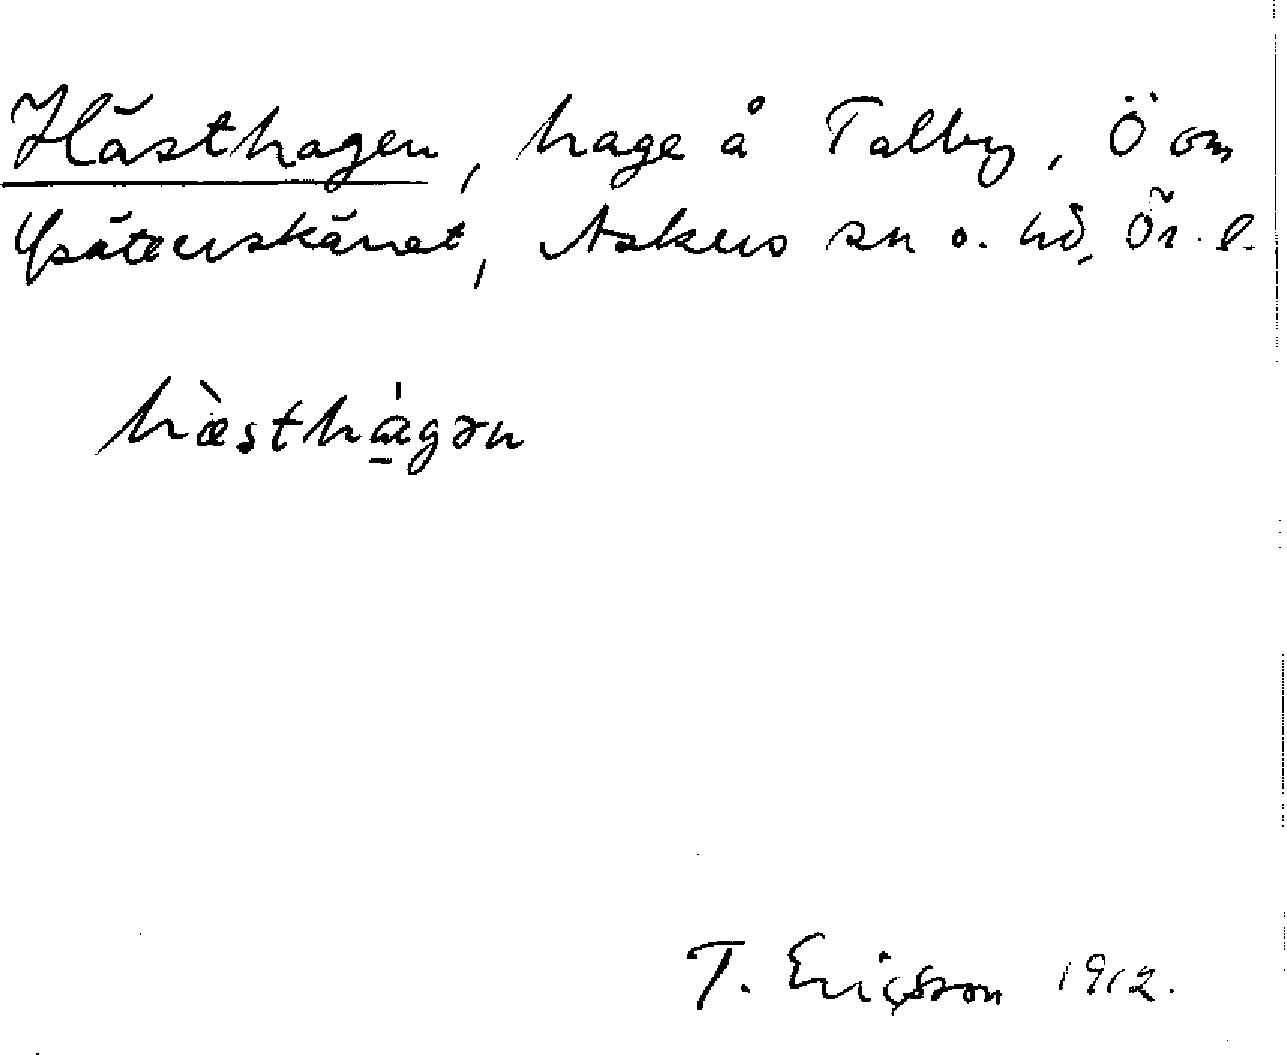 Hästhagen, hage å Talby, Ö om
Göteuskärret, Askers sn o. hd, Ör. l.
hæ̀stha̠̍gən
T. Ericsson 1912.